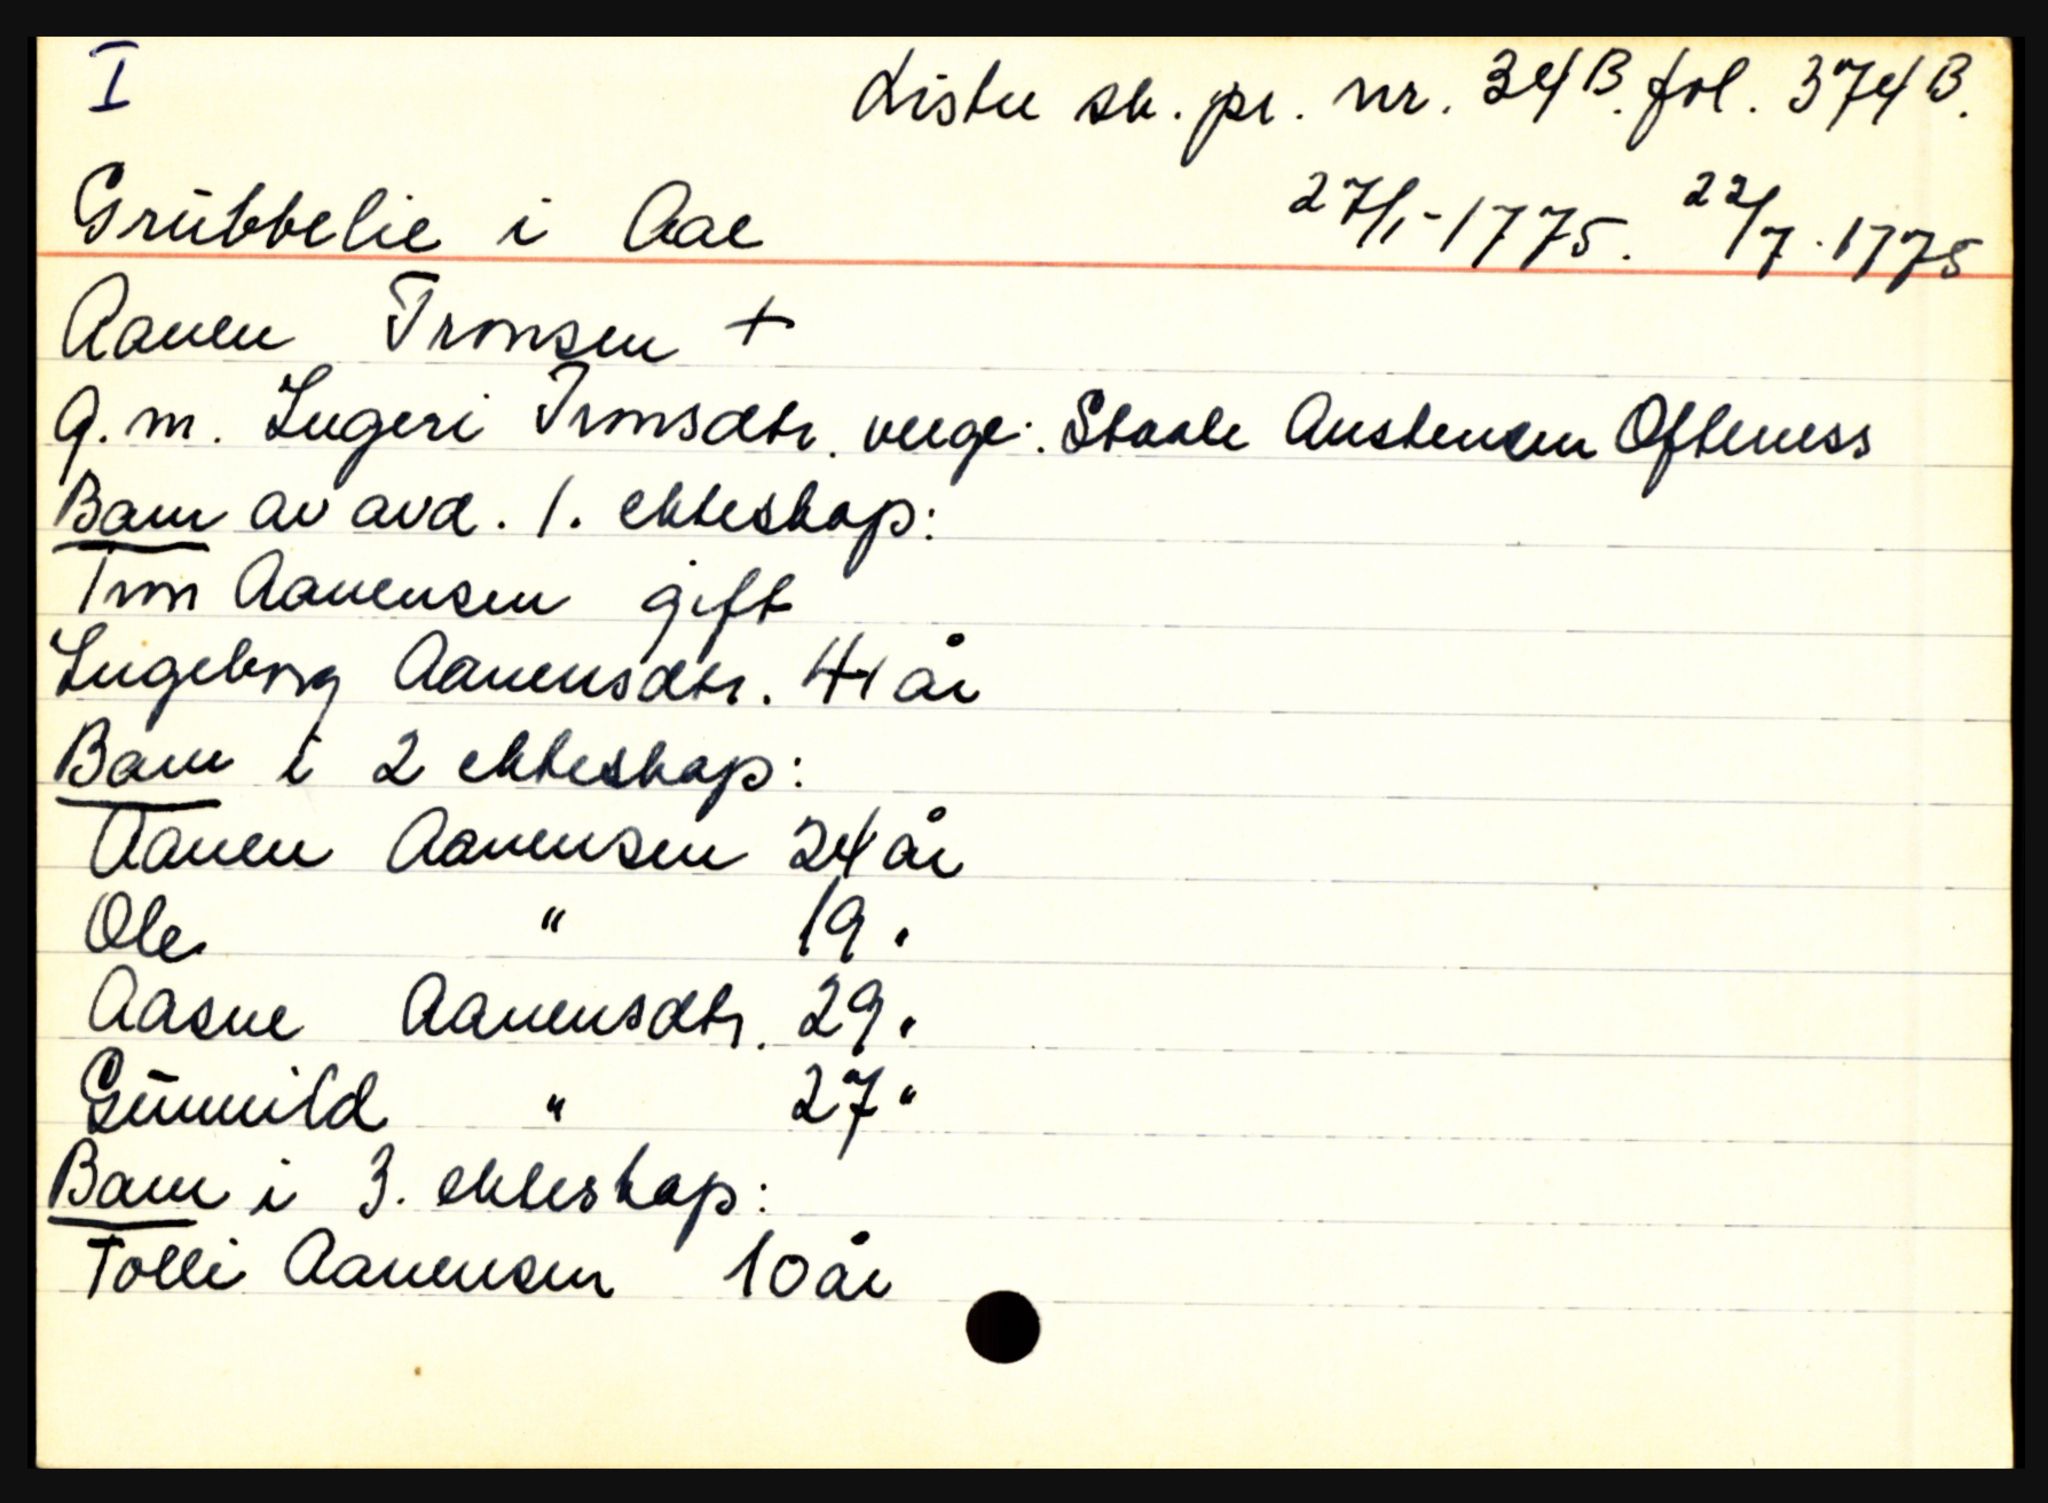 I
Lister sk. pr. nr. 34B. fol. 374B.
Grubbelie i Aae 27/1-1775. 22/7.1775
Aanen Tronsen +
g. m. Ingeri Tronsdtr. verge: Staale Austensen Ofteness
Barn av avd. 1. ekteskap:
Tron Aanensen gift
Ingeborg Aanensdtr. 41 år
Barn i 2 ekteskap:
Aanen Aanensen 24 år
Ole " 19 "
Aasne Aanensdtr. 29 "
Gunnild " 27 "
Barn i 3. ekteskap:
Tolli Aanensen 10 år